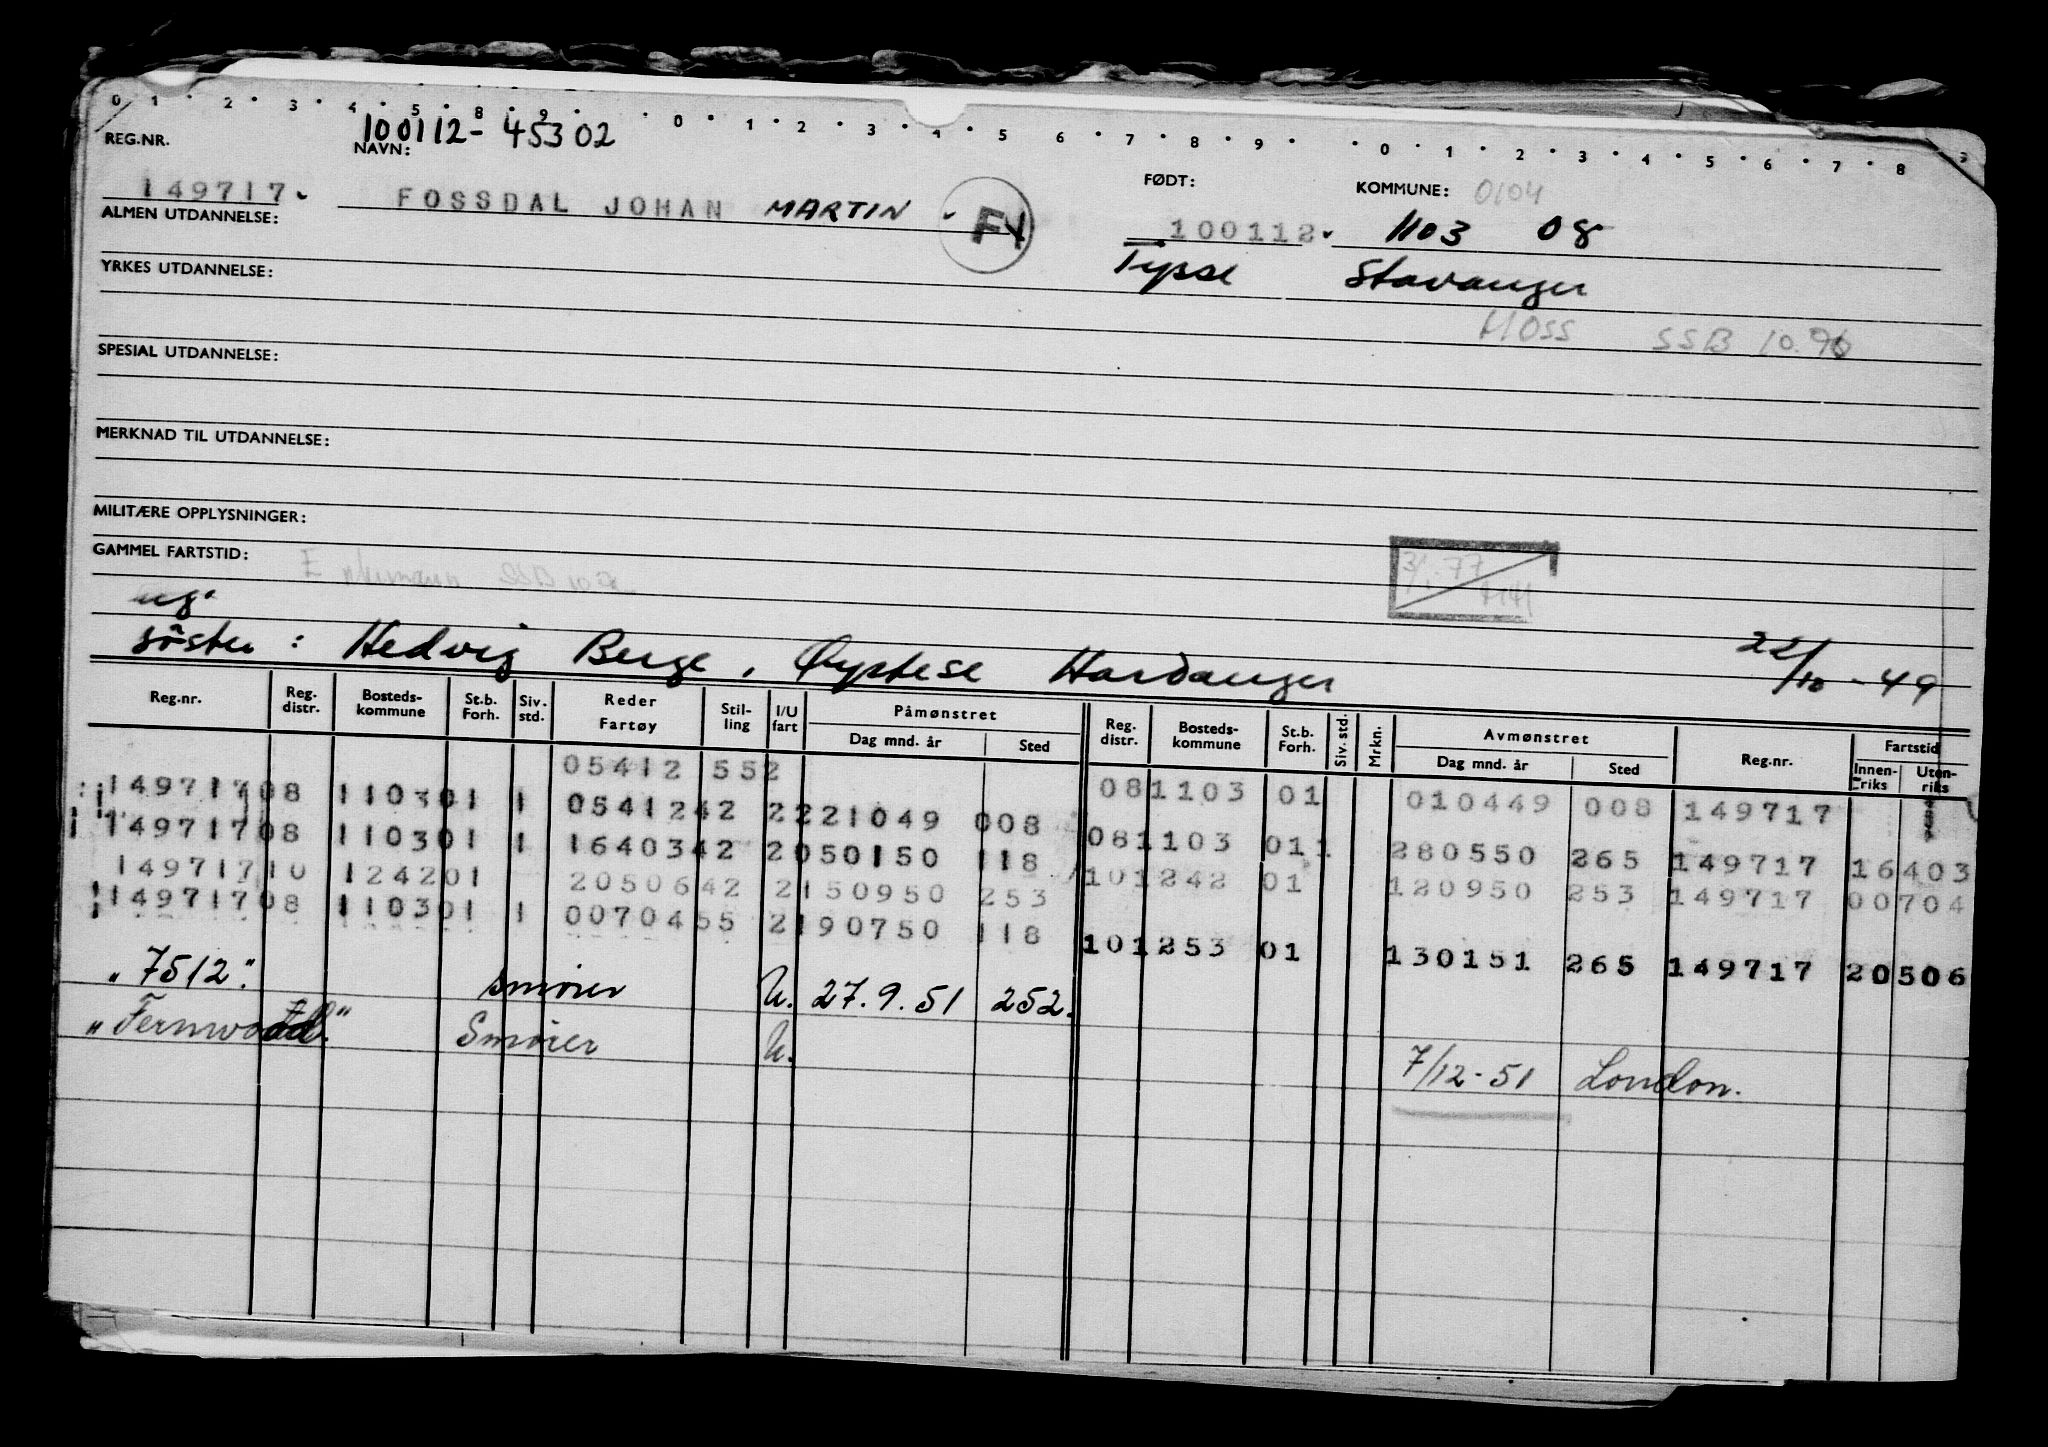 0 1 2 3 4 5 8 9 0 1 2 3 4 5 6 7 8 9 0 1 2 3 4 5 6 7 8
REG.NR. 100112-45302 NAVN: FØDT: KOMMUNE: 0104
149717 FOSSDAL JOHAN MARTIN 100112 1103 08
ALMEN UTDANNELSE: Stavanger
YRKES UTDANNELSE:
MOSS SSB 10.96
SPESIAL UTDANNELSE:
MERKNAD TIL UTDANNELSE:
MILITÆRE OPPLYSNINGER:
GAMMEL FARTSTID:
ug.
søster: Hedvig Berge, Øystese Hardanger 22/10-49
Reg.nr. Reg. distr. Bosteds-kommune St.b. Forh. Siv. std. Reder Fartøy Stil-ling I/U fart Påmønstret Dag mnd. år Sted Reg. distr. Bosteds-kommune St.b. Forh. Siv. std. Mrkn. Avmønstret Dag mnd. år Sted Reg.nr. Fartstid Innen-riks Uten-riks
05412 552 081103 01 010449 008 149717
149717 08 1103 01 1 05412 42 2 221049 008 081103 01 1 280550 265 149717 16403
149717 08 1103 01 1 16403 42 2 050150 118 101242 01 120950 253 149717 00704
149717 10 1242 01 20506 42 2 150950 253
149717 08 1103 01 1 00704 55 2 190750 118 101253 01 130151 265 149717 20506
"7512" smører U. 27.9.51 252.
"Fernwood" Smører U. 7/12-51 London.